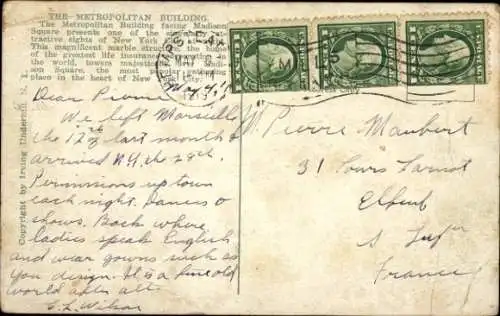 THE METROPOLITAN BUILDING.
The Metropolitan Building facing Madison
Square presents one of the
tractive sights of New York
This magnificent marble structure, the home
of the greatest life insurance in
the world, towers
son Square, the most popular
place in the heart of New York City.
Copyright by Irving Underhill, N. Y.
May 4,
Dear Pierre
We left Marseille
the 17th last month &
arrived N.Y. the 28th.
Permissions up town
each night. Dances &
shows. Back where
ladies speak English
and wear gowns such as
you design. It is a fine old
world after all.
Wilson
M. Pierre Maubert
31 Cours Carnot
Elbeuf
S Infre
France